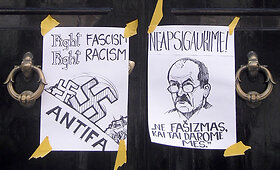 Fight FASCISM
Fight RACISM
ANTIFA
NEAPSIGAUKIME!
„NE FAŠIZMAS,
KAI TAI DAROME
MES."